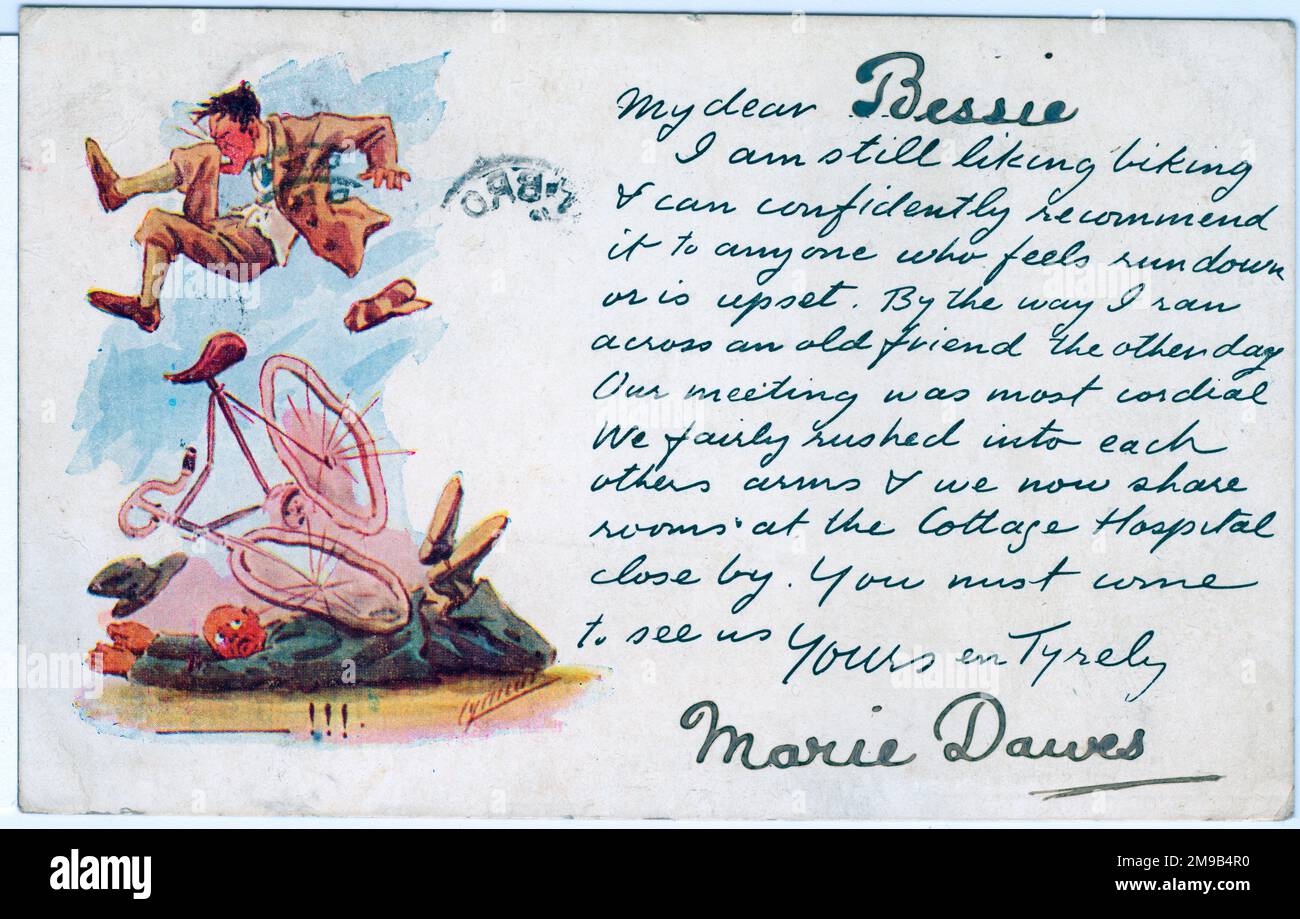 My dear Bessie
I am still liking biking
& can confidently recommend
it to anyone who feels run down
or is upset. By the way I ran
across an old friend the other day
Our meeting was most cordial
We fairly rushed into each
others arms & we now share
rooms at the Cottage Hospital
close by. You must come
to see us Yours en Tyrely
Marie Dawes
!!!
a
alamy
Image ID: 2M9B4R0
www.alamy.com